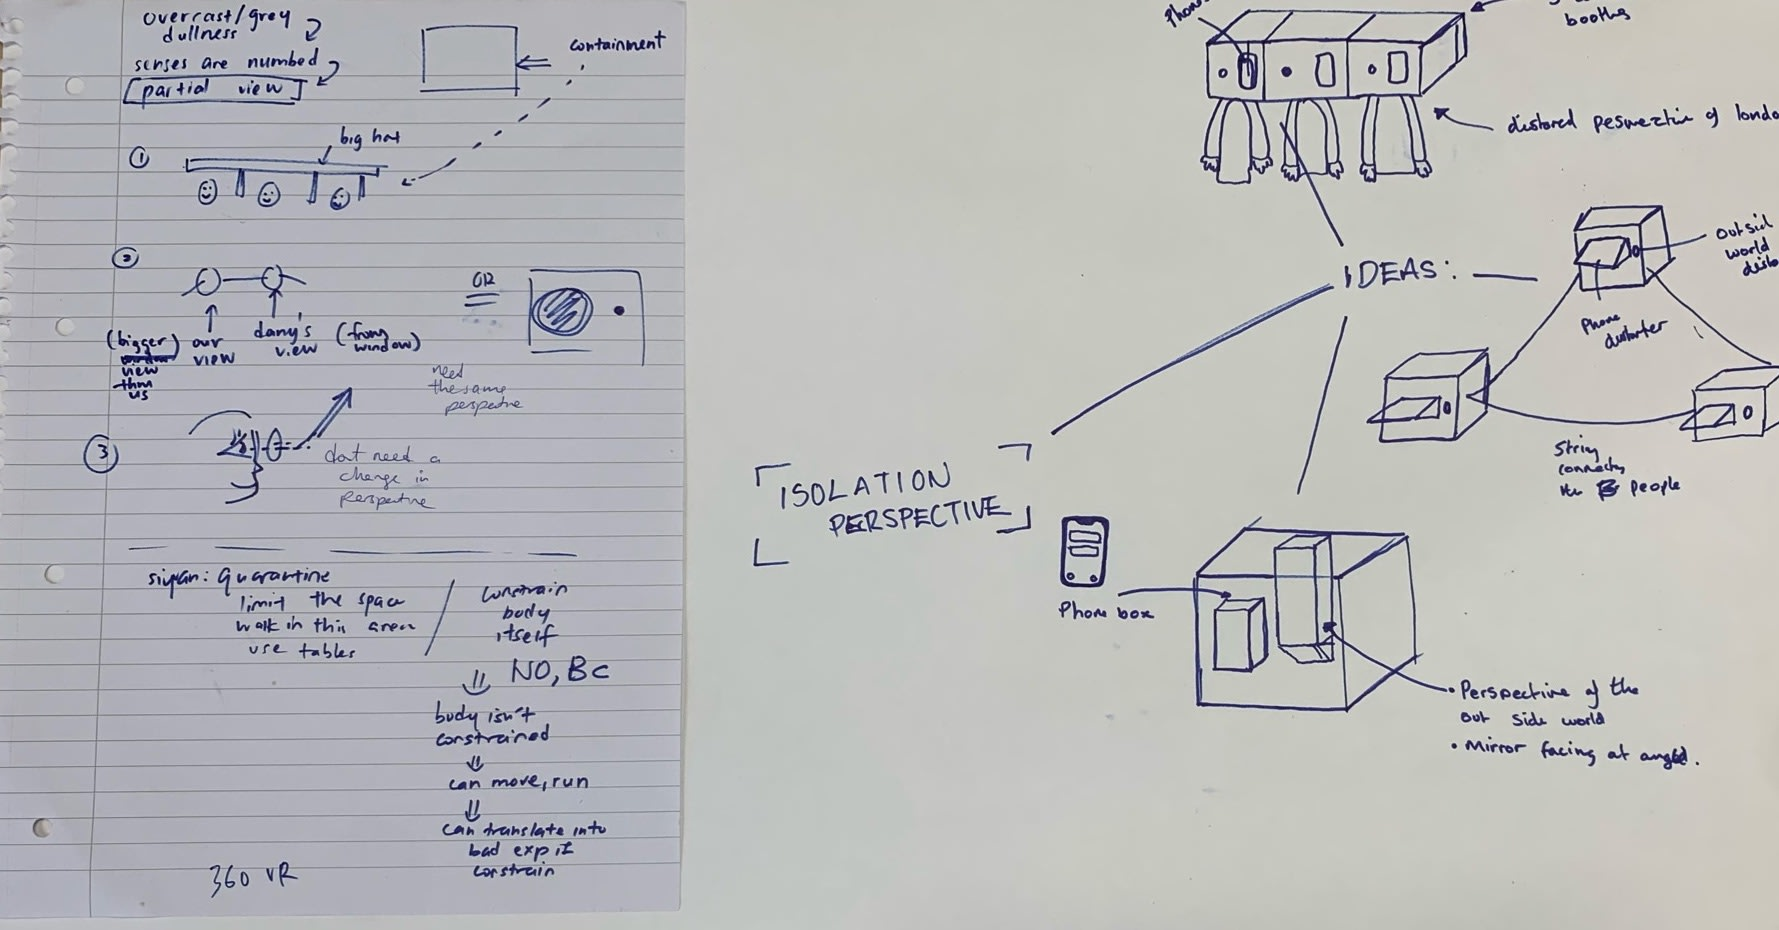 overcast/grey
dullness
senses are numbed
partial view
containment
①
big hat
②
(bigger)
view
thru
us
our
view
dany's
view
(from
window)
OR
need
the same
perspective
③
dont need a
change in
perspective
siyan: quarantine
limit the space
walk in this area
use tables
constrain
body
itself
NO, BC
body isn't
constrained
can move, run
can translate into
bad exp if
constrain
360 VR
ISOLATION
PERSPECTIVE
IDEAS:
booths
Phone
distorter
String
connects
the people
Phone box
• Perspective of the
out side world
• Mirror facing at angled.